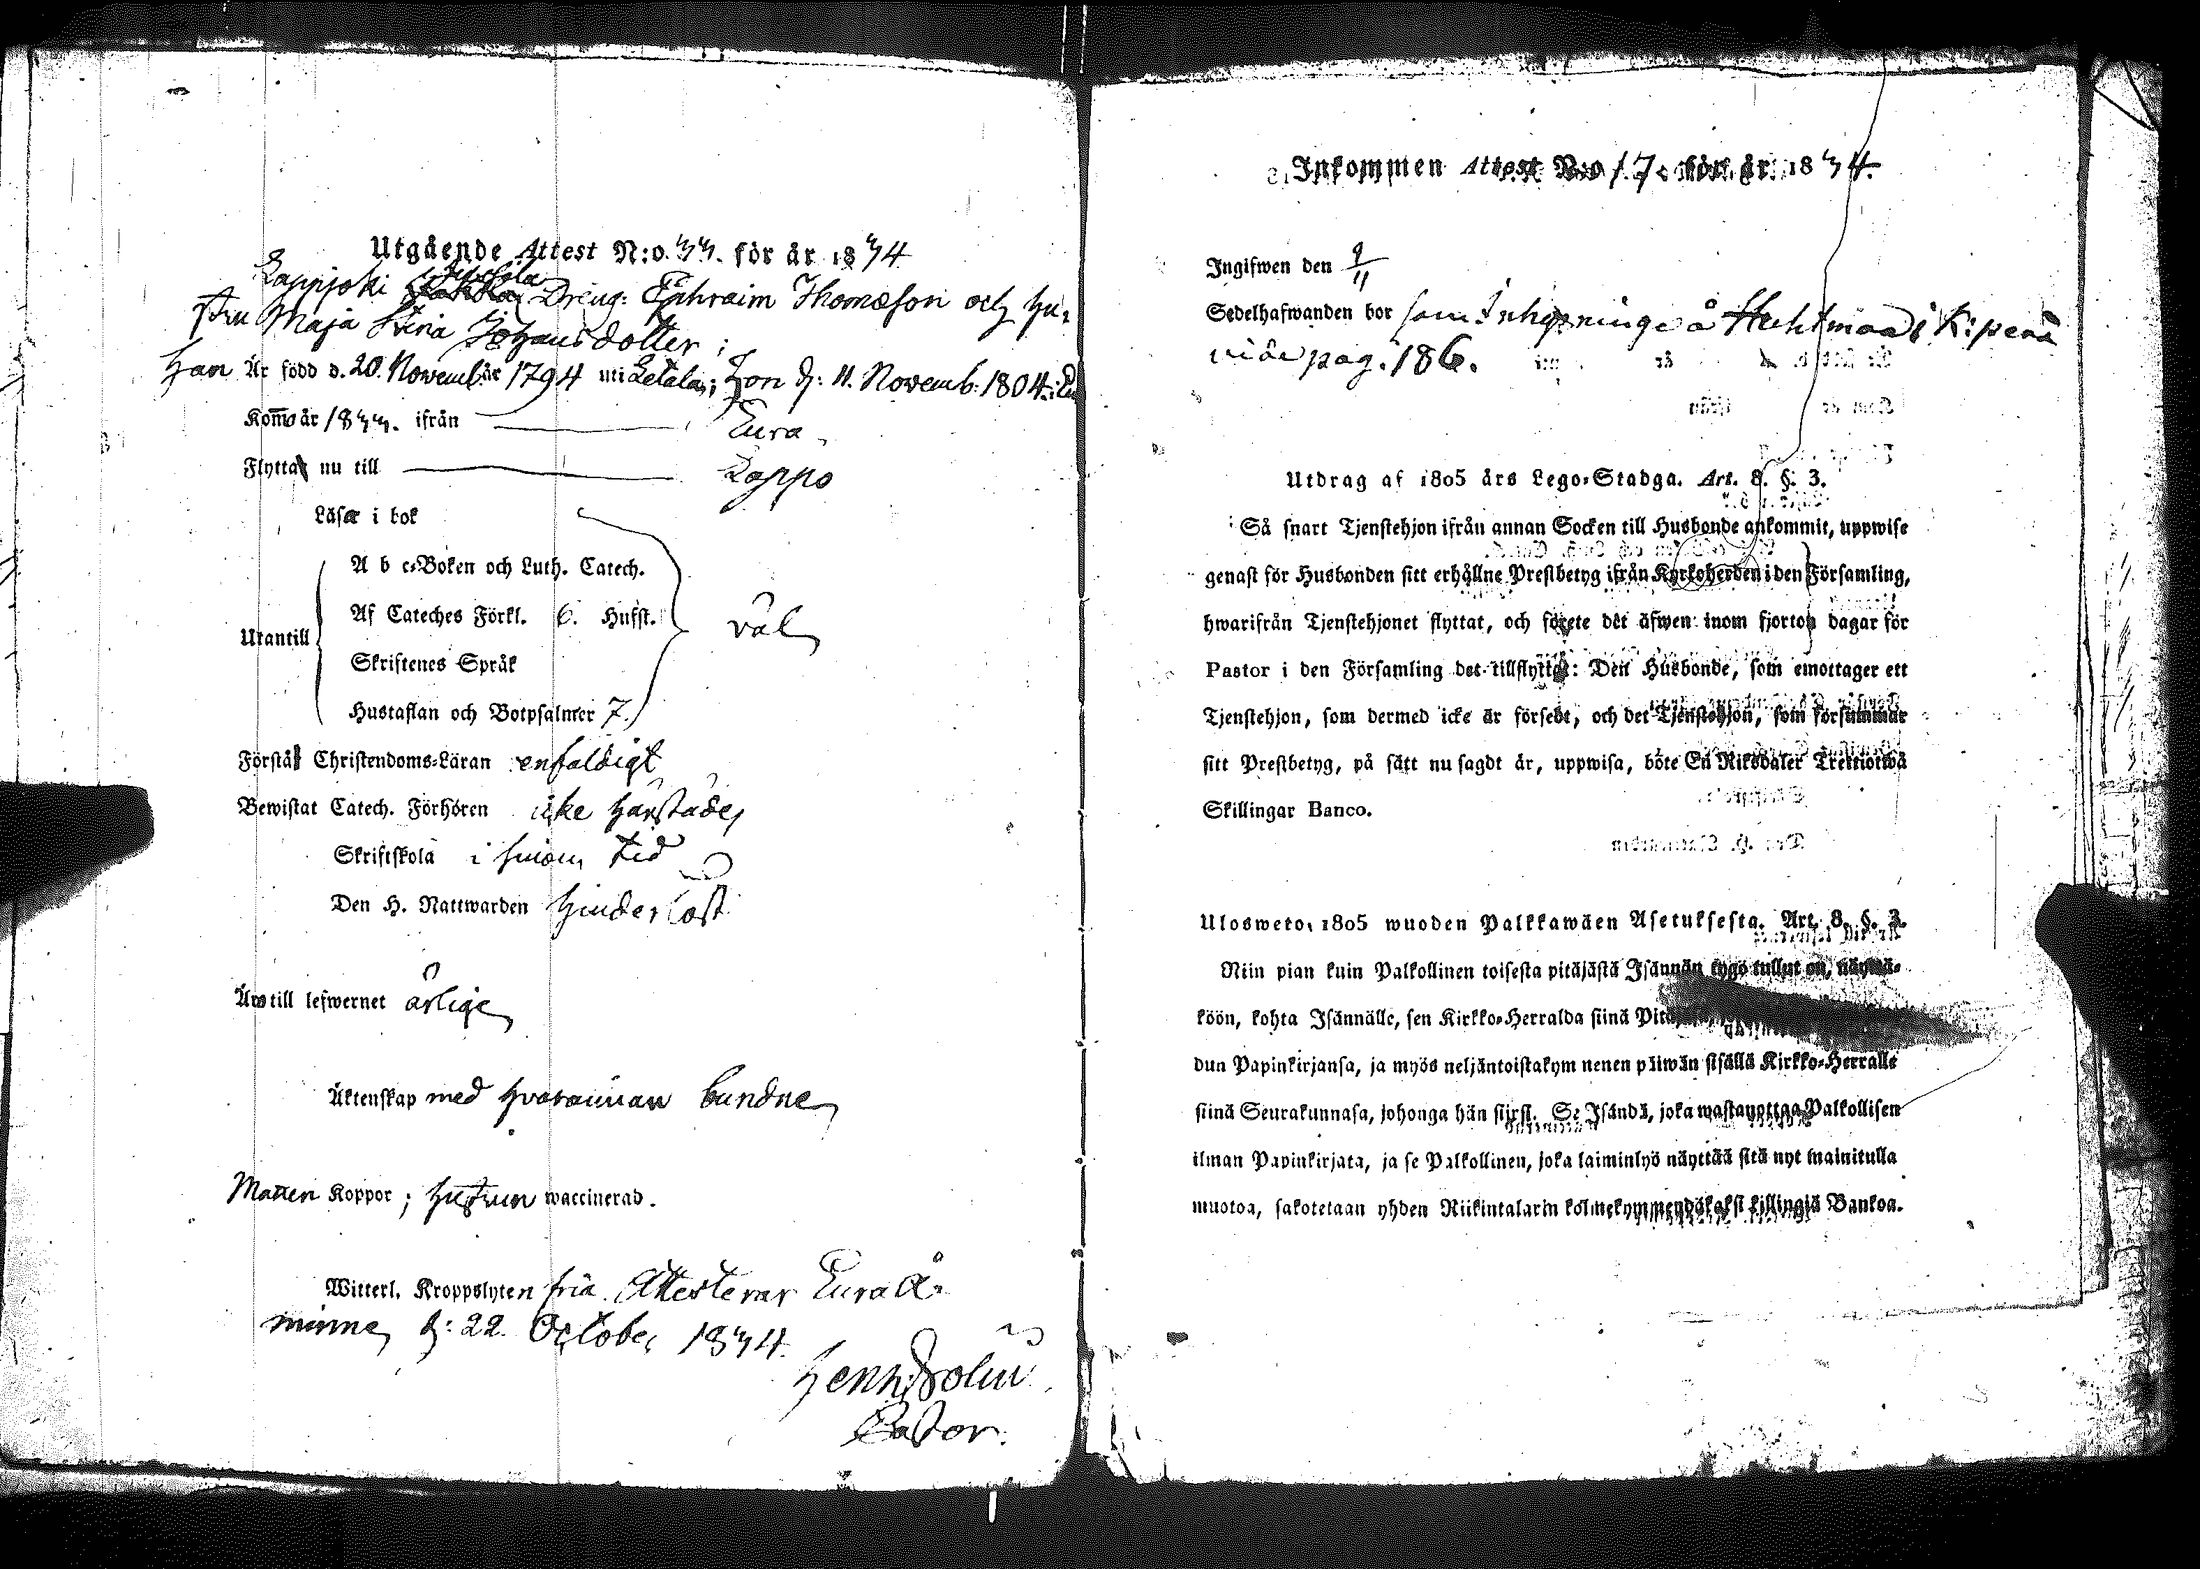 Utgående Attest N:o 33. för år 1834
Lappjoki Dreng: Ephraim Thomæson och hu-
stru Maja Stina Johansdotter;
Han Är född d. 20. Novemb: år 1794 uti Letala; hon d: 11. Novemb: 1804 i Eu
Kom̄o år 1833. ifrån Eura
Flytta nu till Lappo
Läsa i bok
A b c-Boken och Luth. Catech.
Af Cateches Förkl. 6. Hufst.
Utantill väl
Skriftenes Språk
Hustaflan och Botpsalmer 7.
Förstå Christendoms-Läran enfaldigt
Bewistat Catech. Förhören icke härstädes
Skriftskola i sinom tid
Den H. Nattwarden hinderlöst
Äro till lefwernet ärlige
Äktenskap med hvarannan bundne
Mannen Koppor; hustrun waccinerad.
Witterl. Kroppslyten fria. Attesterar Eura Å-
minne d: 22. October 1834.
Henr:
Pastor.
Inkommen Attest N:o 17. för år 1834.
Ingifwen den 9/11
Sedelhafwanden bor som Inhysninge å Huhtmaa i K:perä
vide pag. 186.
Utdrag af 1805 års Lego-Stadga. Art. 8. §. 3.
Så snart Tjenstehjon ifrån annan Socken till Husbonde ankommit, uppwise
genast för Husbonden sitt erhållne Prestbetyg ifrån Kyrkoherden i den Församling,
hwarifrån Tjenstehjonet flyttat, och förete det äfwen inom fjorton dagar för
Pastor i den Församling det tillflyttat: Den Husbonde, som emottager ett
Tjenstehjon, som dermed icke är försedt, och det Tjenstehjon, som försummar
sitt Prestbetyg, på sätt nu sagdt är, uppwisa, böte En Riksdaler Trettiotwå
Skillingar Banco.
Ulosweto, 1805 wuoden Palkkawäen Asetuksesta. Art. 8. §. 3.
Niin pian kuin Palkollinen toisesta pitäjästä Isännän tygö tullut on, näyttä-
köön, kohta Isännälle, sen Kirkko-Herralda siinä
dun Papinkirjansa, ja myös neljäntoistakymmenen päiwän sisällä Kirkko-Herralle
siinä Seurakunnasa, johonga hän siirst. Se Isändä, joka wastanottaa Palkollisen
ilman Papinkirjata, ja se Palkollinen, joka laiminlyö näyttää sitä nyt mainitulla
muotoa, sakotetaan yhden Riikintalarin kolmekymmendäkaksi killingiä Bankoa.